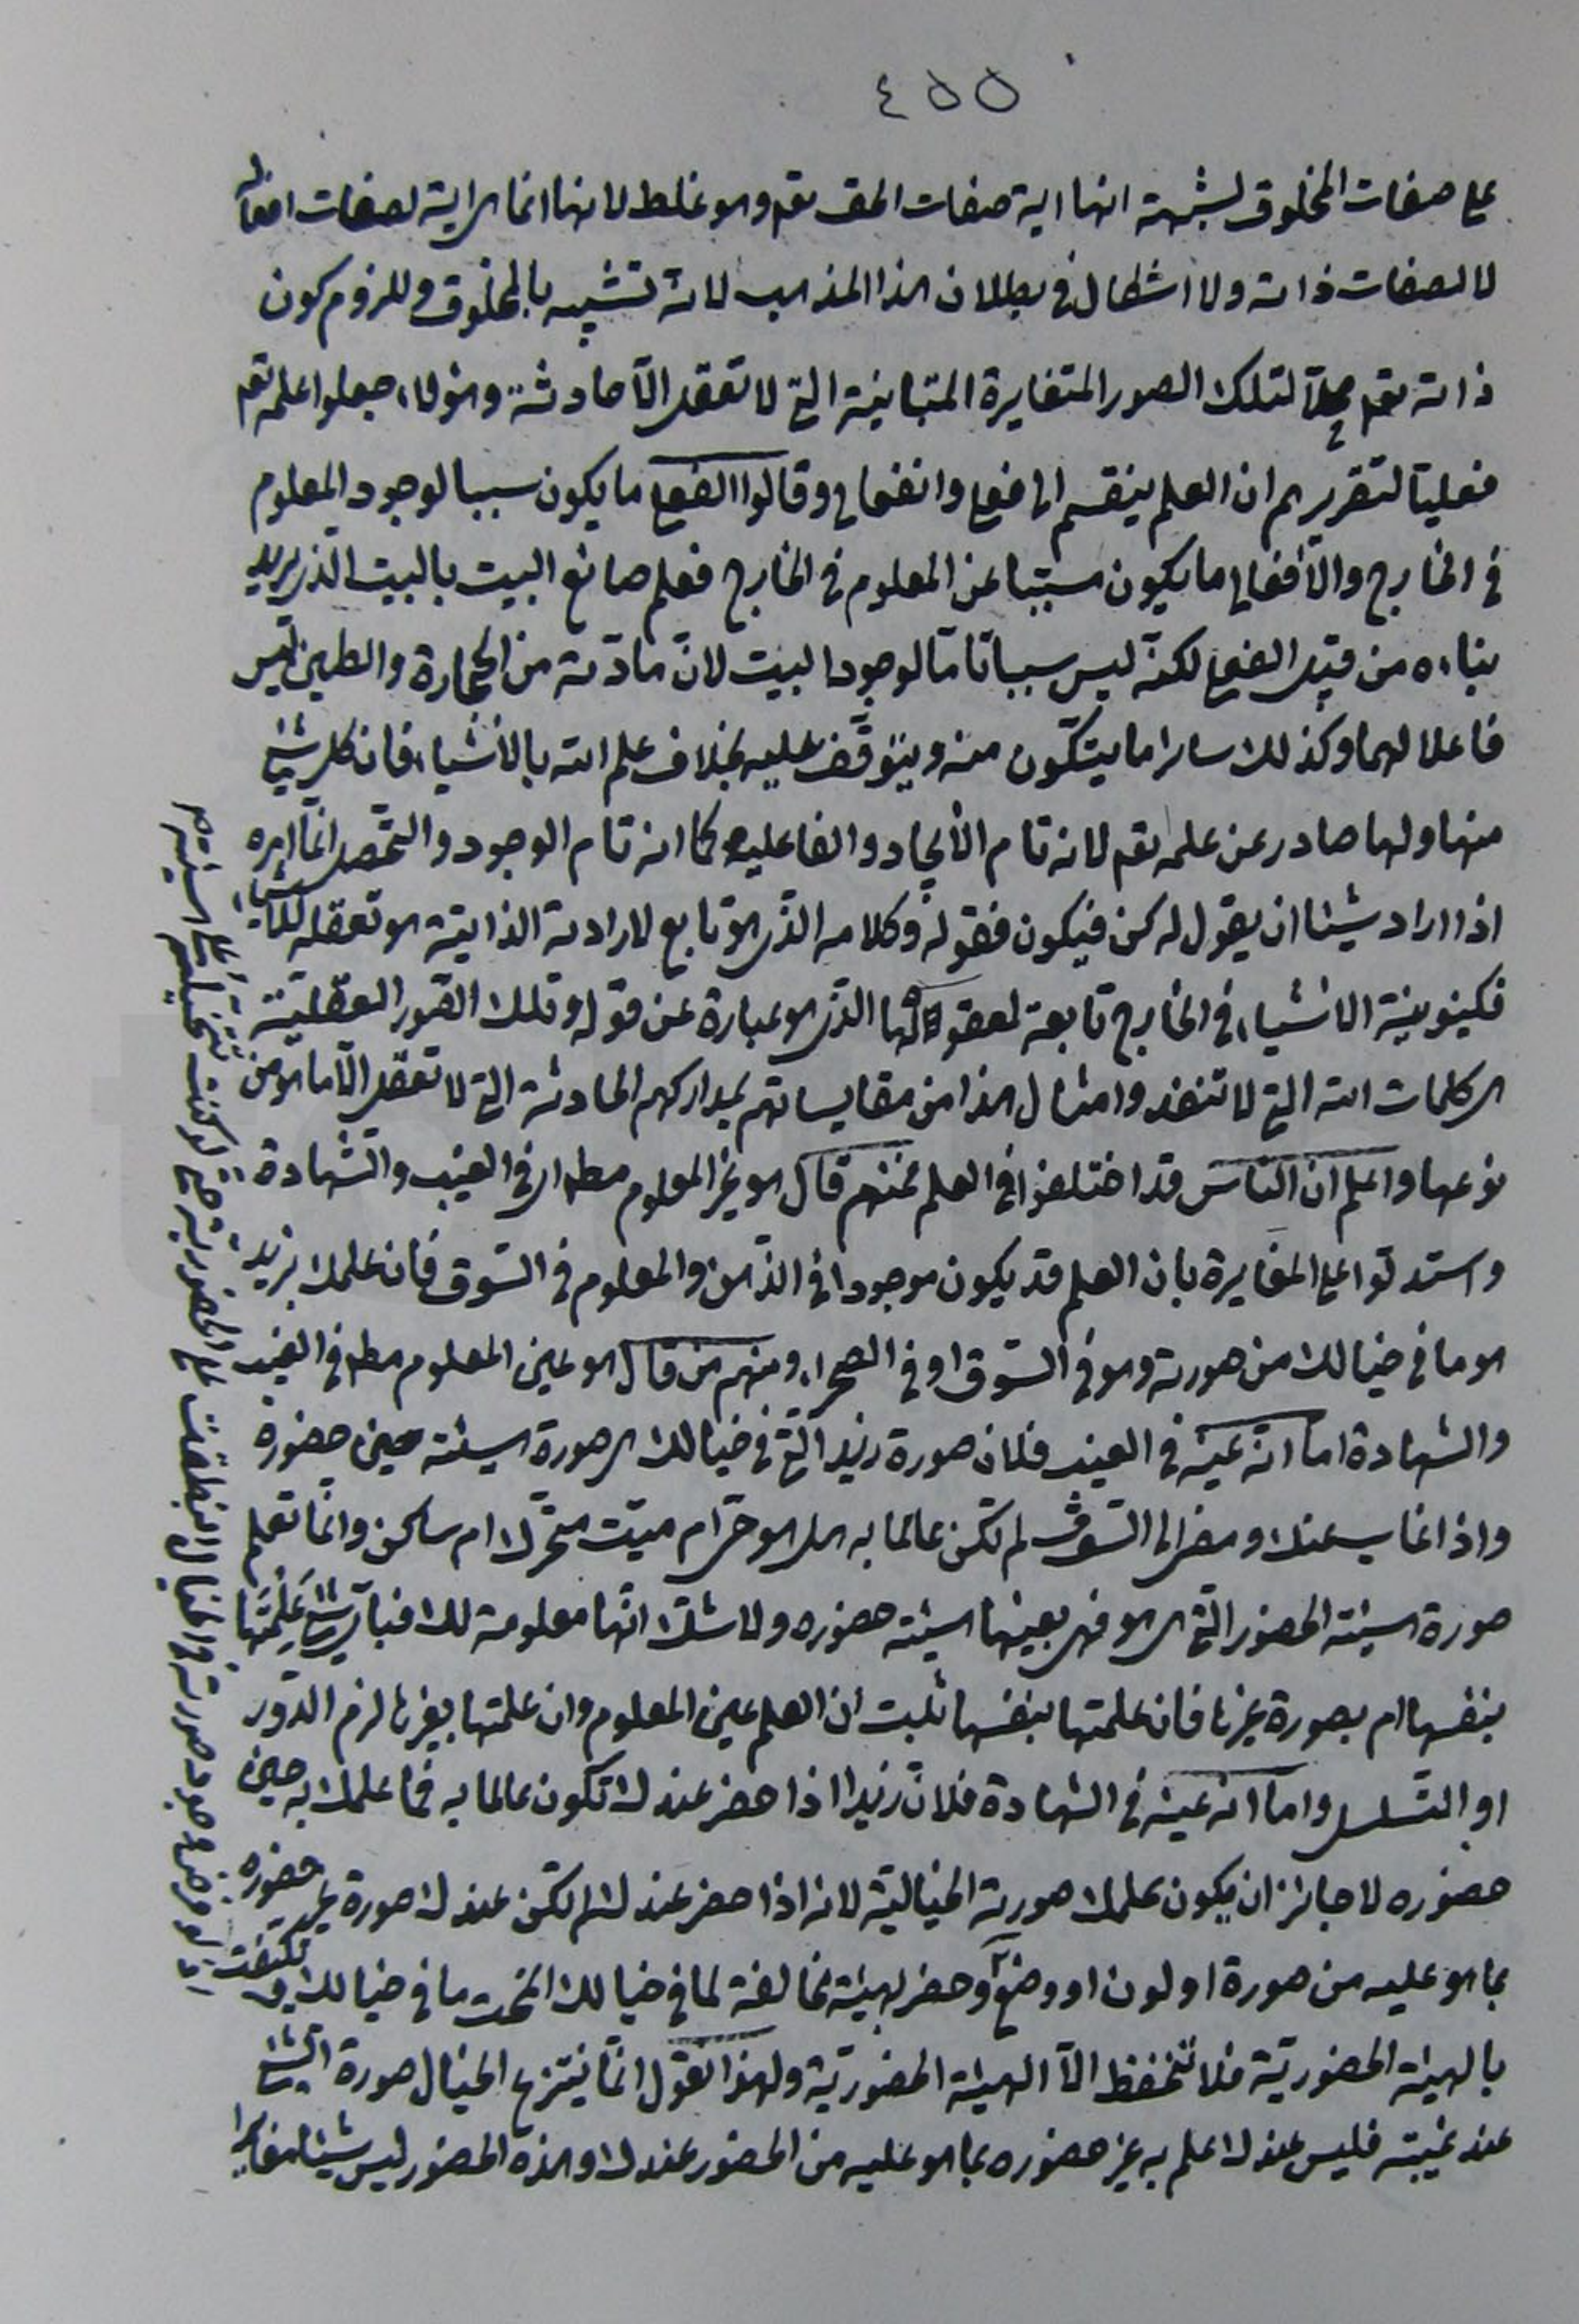 ٤٥٥
على صفات المخلوق لشبهة انها اية صفات الحق تعه وهو غلط لانها انما هى اية لصفات افعاله
لا لصفات ذاته ولا اشكال فى بطلان هذا المذهب لانه تشبيه بالمخلوق وللزوم كون
ذاته تعه محلا لتلك الصور المتغايرة المتباينة التى لا تعقل الّا حادثة وهؤلاء جعلوا علمه تعه
فعليّا لتقريرهم ان العلم ينقسم الى فعلى وانفعالى وقالوا الفعلى ما يكون سببا لوجود المعلوم
فى الخارج والأنفعالى ما يكون مسبّبا عن المعلوم فى الخارج فعلم صانع البيت بالبيت الذى يريد
بناءه من قبيل الفعلى لكنّه ليس سببا تامّا لوجود البيت لانّ مادّته من الحجارة والطين ليس
فاعلا لهما وكذلك ساير ما يتكوّن منه ويتوقّف عليه بخلاف علم الله بالأشياء فان كل شئ
منها ولها صادر عن علمه تعه لانه تام الأيجاد والفاعلية كما انه تام الوجود والتحصّل انّما امره
اذا اراد شيئا ان يقول له كن فيكون فقوله وكلامه الذى هو تابع لارادته الذاتية هو تعقله للأشياء
فكينونية الاشياء فى الخارج تابعة لمعقولاتها الذى هو عبارة عن قوله وتلك الصور العقلية
هى كلمات الله التى لا تنفد وامثال هذا من مقايساتهم بمداركهم الحادثة التى لا تعقل الّا ما هو من
نوعها واعلم ان الناس قد اختلفوا فى العلم فمنهم قال هو غير المعلوم مطلقا فى الغيب والشهادة
واستدلّوا على المغايرة بان العلم قد يكون موجودا فى الذّهن والمعلوم فى السّوق فان علمك بزيد
هو ما فى خيالك من صورته وهو فى السّوق او فى الصحراء ومنهم من قال هو عين المعلوم مطه فى الغيب
والشهادة اما انّه عينه فى الغيب فلان صورة زيد الّتى فى خيالك هى صورة هيئته حين حضوره
واذا غاب عنك ومضى الى السّوق لم تكن عالما به هل هو حىّ ام ميّت متحرّك ام ساكن وانّما تعلم
صورة هيئة الحضور الّتى هى هو فهى بعينها هيئة حضوره ولا شك انّها معلومة لك فباىّ شئ علمتها
بنفسها ام بصورة غيرها فان علمتها بنفسها ثبت ان العلم عين المعلوم وان علمتها بغيرها لزم الدّور
او التسلسل واما انه عينه فى الشهادة فلانّ زيدا اذا حضر عندك تكون عالما به فما علمك به حين
حضوره لا جائز ان يكون علمك صورته الخيالية لانه اذا حضر عندك لم تكن عندك صورة غير حضوره
بما هو عليه من صورة او لون او وضع وحضر بهيئة مخالفة لما فى خيالك انمحت ما فى خيالك وتكيفت
بالهيئة الحضوريّة فلا تنحفظ الّا الهيئة الحضوريّة ولهذا نقول انّما ينتزع الخيال صورة الشئ
عند غيبته فليس عندك علم به غير حضوره بما هو عليه من الحضور عندك وهذه الحضور ليس شيئا مغايرا